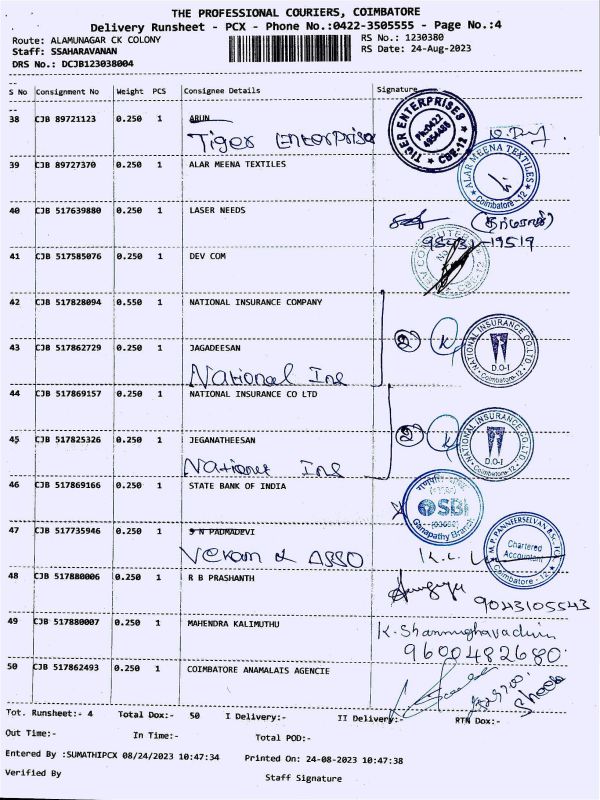 THE PROFESSIONAL COURIERS, COIMBATORE
Delivery Runsheet - PCX - Phone No.:0422-3505555 - Page No.:4
Route: ALAMUNAGAR CK COLONY
RS No.: 1230380
Staff: SSAHARAVANAN
RS Date: 24-Aug-2023
DRS No.: DCJB123038004
S No Consignment No Weight PCS Consignee Details Signature
38 CJB 89721123 0.250 1 ARUN
Tiger Enterprise
TIGER ENTERPRISES
Ph:0422
4954485
CBE-12
39 CJB 89727370 0.250 1 ALAR MEENA TEXTILES
ALAR MEENA TEXTILES
Coimbatore-12
40 CJB 517639880 0.250 1 LASER NEEDS
95431-19519
41 CJB 517585076 0.250 1 DEV COM
42 CJB 517828094 0.550 1 NATIONAL INSURANCE COMPANY
43 CJB 517862729 0.250 1 JAGADEESAN
National Ins
2
NATIONAL INSURANCE CO.LTD
D.O-I
Coimbatore-12
44 CJB 517869157 0.250 1 NATIONAL INSURANCE CO LTD
45 CJB 517825326 0.250 1 JEGANATHEESAN
National Ins
2
NATIONAL INSURANCE CO.LTD
D.O-I
Coimbatore-12
46 CJB 517869166 0.250 1 STATE BANK OF INDIA
SBI
Ganapathy Branch
47 CJB 517735946 0.250 1 S N PADMADEVI
M.P. PANNEERSELVAN
Chartered
Accountant
Coimbatore-12
48 CJB 517880006 0.250 1 R B PRASHANTH
9043105543
49 CJB 517880007 0.250 1 MAHENDRA KALIMUTHU
9600482680
50 CJB 517862493 0.250 1 COIMBATORE ANAMALAIS AGENCIE
Tot. Runsheet:- 4 Total Dox:- 50 I Delivery:- II Delivery:- RTN Dox:-
Out Time:- In Time:- Total POD:-
Entered By :SUMATHIPCX 08/24/2023 10:47:34 Printed On: 24-08-2023 10:47:38
Verified By Staff Signature